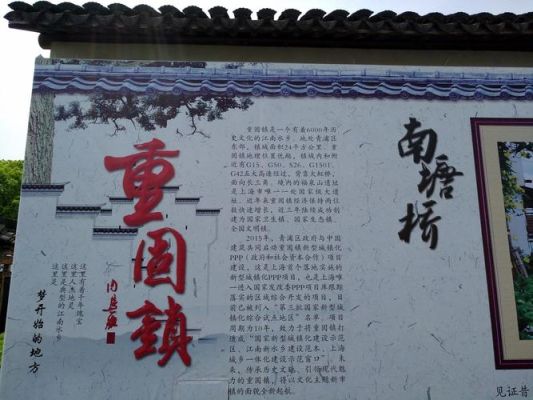 重固镇
这里有着千年瑰宝
这里人杰地灵
这里是典型的江南水乡
这里是
梦开始的地方
重固镇是一个有着6000年历
史文化的江南水乡，地处青浦区
东部，镇域面积24平方公里。重
固镇地理位置优越，镇域内和附
近有G15、G50、S26、G1501、
G42五大高速经过，背靠大虹桥，
面向长三角，境内的福泉山遗址
是上海市唯一一处国家级大遗
址，近年来重固镇经济保持两位
数快速增长，近三年陆续成功创
建为国家卫生镇、国家生态镇、
全国文明镇。
2015年，青浦区政府与中国
建筑共同启动重固镇新型城镇化
PPP（政府和社会资本合作）项目
建设，这是上海首个落地实施的
新型城镇化PPP项目，也是上海唯
一进入国家发改委PPP项目库跟踪
落实的区域综合开发的项目，目
前已被列入“第三批国家新型城
镇化综合试点地区”名单。项目
周期为10年，致力于将重固镇打
造成“国家新型城镇化建设示范
区、江南新水乡建设范本、上海
城乡一体化建设示范窗口”。未
来，传承历史文脉、引领现代魅
力的重固镇，将以文化主题新市
镇的面貌全新起航。
南塘桥
见证昔